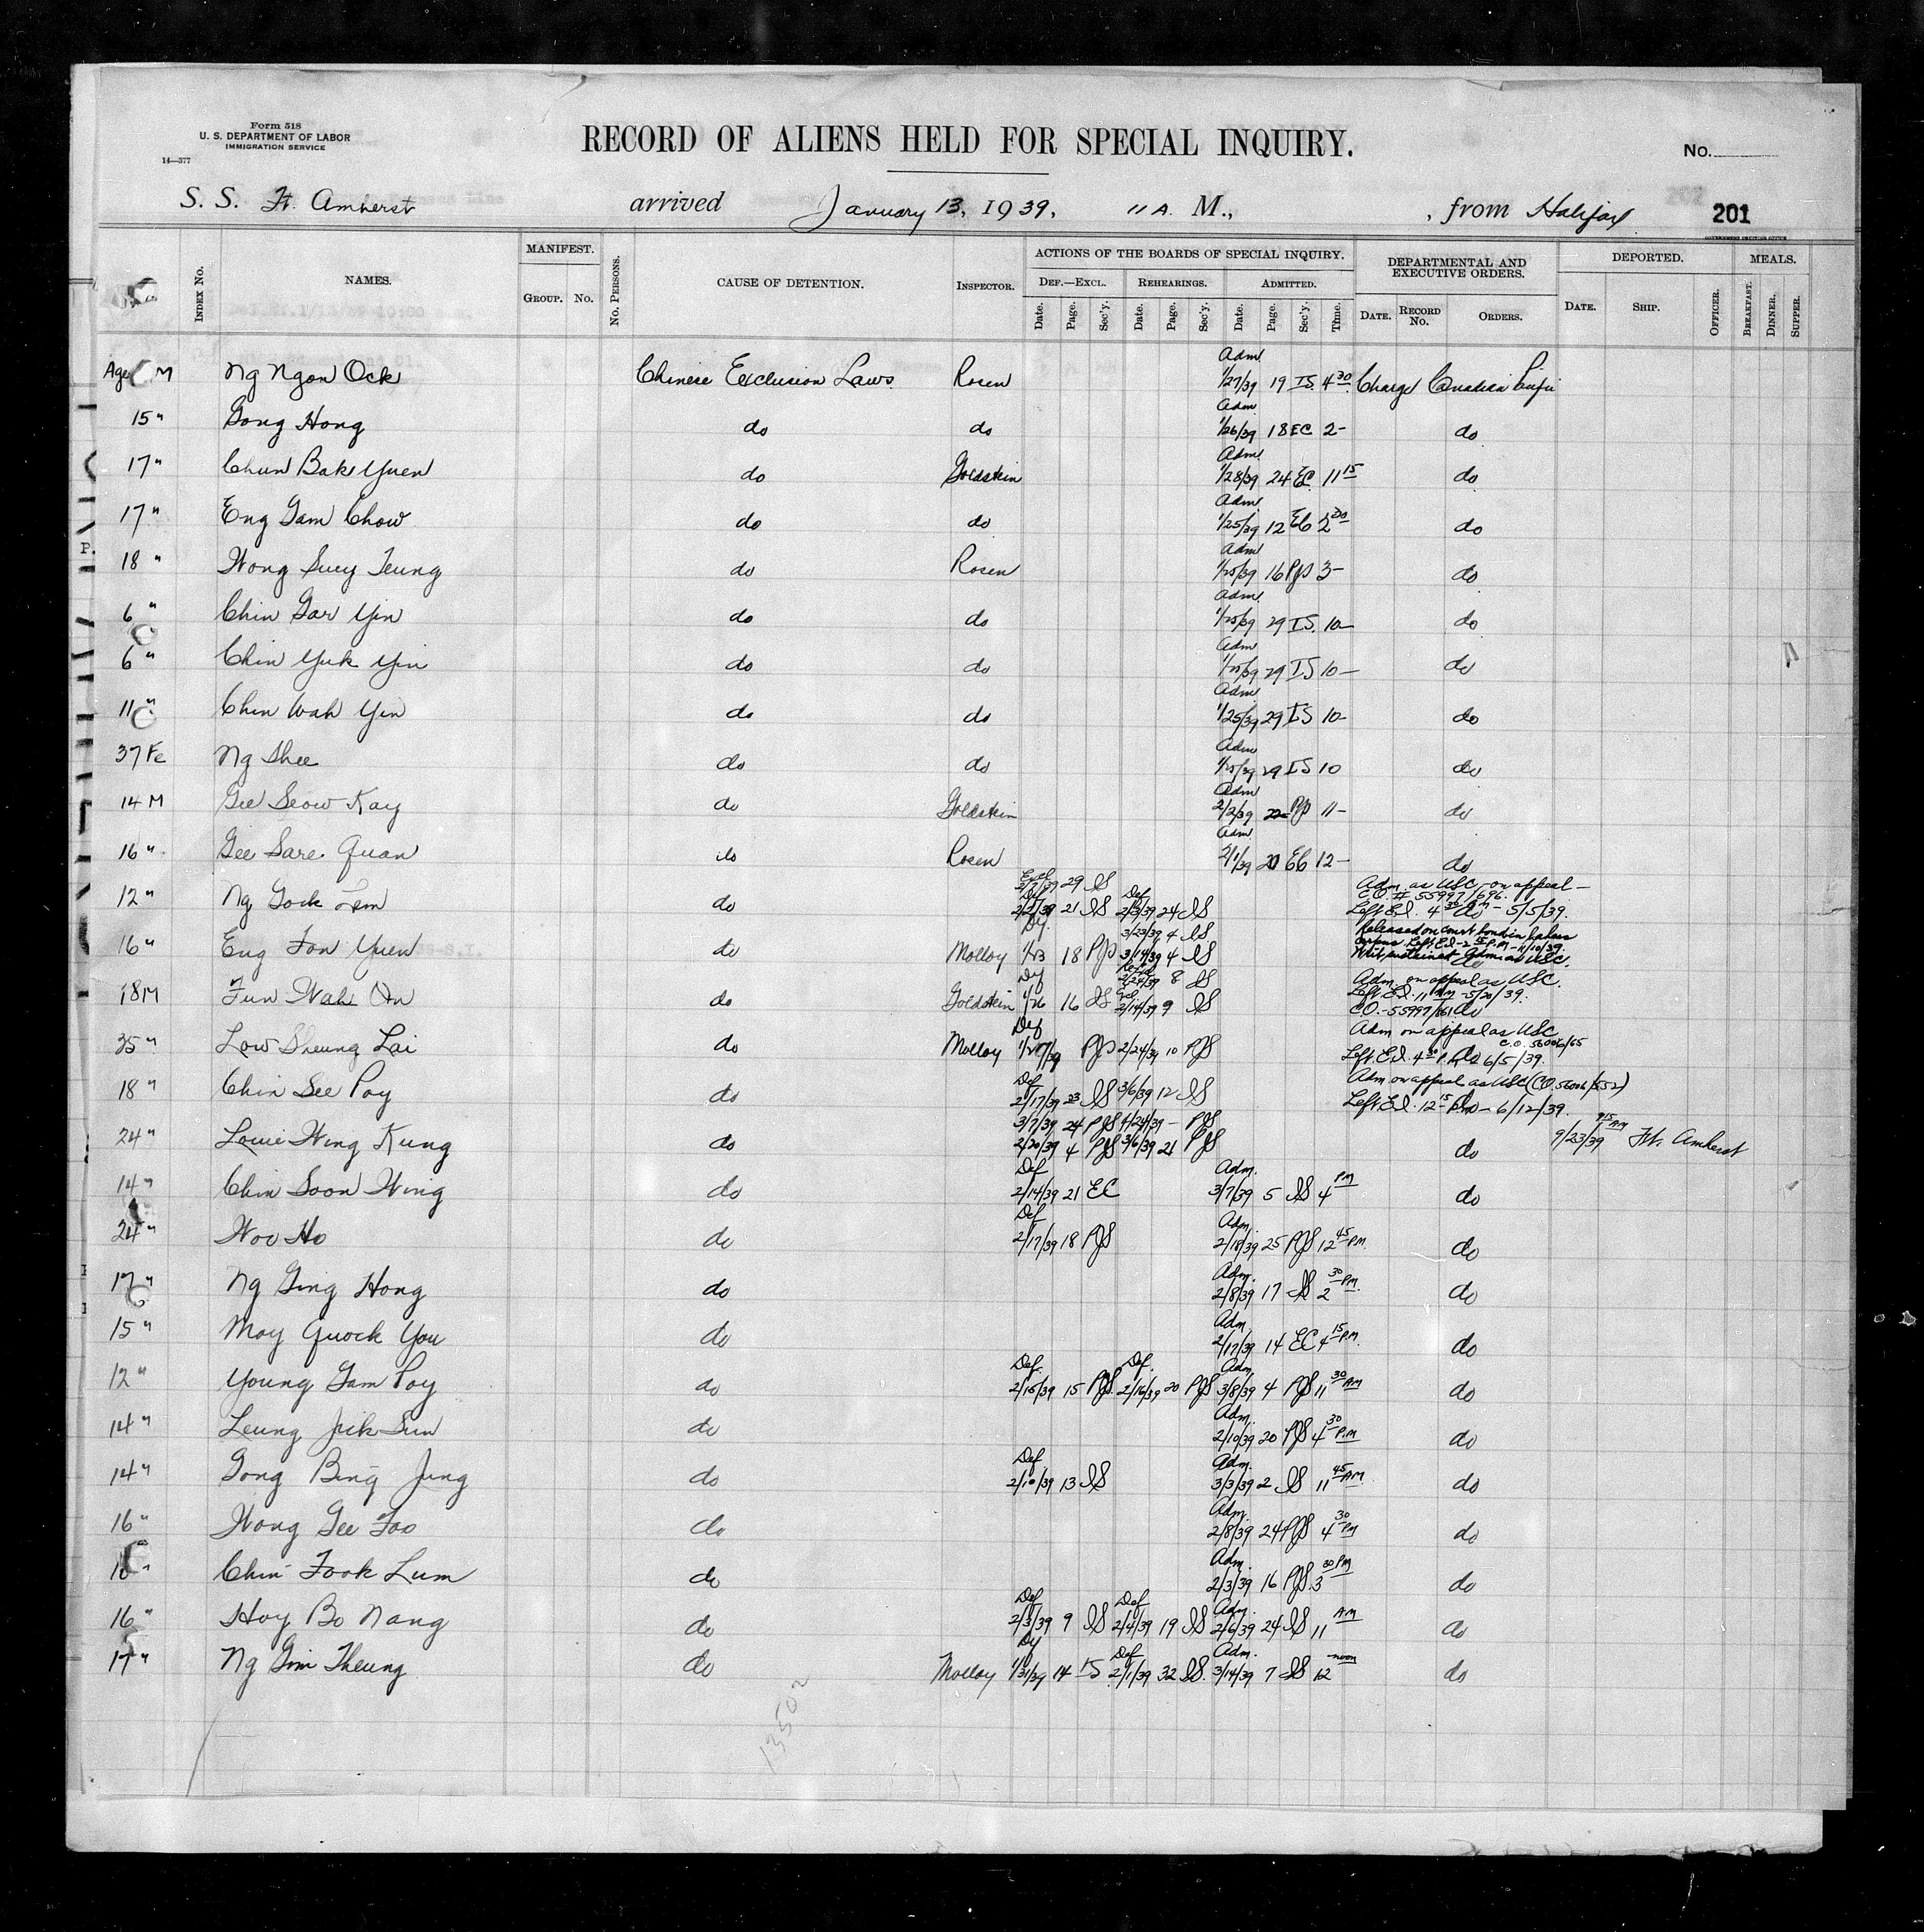 Form 518
U. S. DEPARTMENT OF LABOR
IMMIGRATION SERVICE
14—377
RECORD OF ALIENS HELD FOR SPECIAL INQUIRY.
No.
S. S. Ft. Amherst arrived January 13, 1939, 11 A. M., , from Halifax
201
INDEX No. NAMES. MANIFEST. GROUP. No. No. PERSONS. CAUSE OF DETENTION. INSPECTOR. ACTIONS OF THE BOARDS OF SPECIAL INQUIRY. DEPARTMENTAL AND EXECUTIVE ORDERS. DEPORTED. MEALS.
DEF.—EXCL. REHEARINGS. ADMITTED.
Date. Page. Sec'y. Date. Page. Sec'y. Date. Page. Sec'y. Time. DATE. RECORD No. ORDERS. DATE. SHIP. OFFICER. BREAKFAST. DINNER. SUPPER.
Age M Ng Ngon Ock Chinese Exclusion Laws Rosen Adm 1/27/39 19 IS. 4 30 Charge Canadian
15 " Gong Hong do do Adm 1/26/39 18 EC 2- do
17 " Chun Bak Yuen do Goldstein Adm 1/28/39 24 EC 11 15 do
17 " Eng Gam Chow do do Adm 1/25/39 12 EC 2 do
18 " Wong Suey Teung do Rosen Adm 1/25/39 16 PJS 3- do
6 " Chin Gar Yin do do Adm 1/25/39 29 IS. 10- do
6 " Chin Yuk Yin do do Adm 1/25/39 29 IS 10- do
11 " Chin Wah Yin do do Adm 1/25/39 29 IS 10- do
37 Fe Ng Shee do do Adm 1/25/39 29 IS 10 do
14 M Gee Seow Kay do Goldstein Adm 2/2/39 22 PJS 11- do
16 " Gee Sare Quan do Rosen Adm 2/1/39 20 EC 12- do
12 " Ng Gock Lem do Excl 29 IS Def 21 IS Def 2/3/39 24 IS Adm. as USC on appeal— C.O. # 55997/696. Left E.I. 4 30 5/5/39.
16 " Eng Fon Yuen do Molloy Def 1/23 18 PJS 3/23/39 4 IS 3/14/39 4 IS Released on court bond in habeas corpus Left E.I. 2 P.M. Writ sustained Adm. as USC.
18 M Fun Wah On do Goldstein Def 1/26 16 IS 2/24/39 8 IS 2/14/39 9 IS Adm. on appeal as USC. Left E.I. 11 AM 5/20/39. C.O. 55997/
35 " Low Sheung Lai do Molloy Def PJS 2/24/39 10 PJS Adm on appeal as USC C.O. 56006/65 Left E.I. 4 30 P.M. 6/5/39.
18 " Chin See Poy do Def 2/17/39 23 IS 3/6/39 12 IS Adm on appeal as USC (CO. 56006/552) Left E.I. 12 15 PM — 6/12/39.
24 " Louie Wing Kung do 3/7/39 24 PJS 4/24/39 — PJS 2/20/39 4 PJS 3/6/39 21 PJS do 9/23/39 9 15 AM Ft. Amherst
14 " Chin Soon Wing do Def 2/14/39 21 EC Adm. 3/7/39 5 IS 4 PM do
24 " Woo Ho do Def 2/17/39 18 PJS Adm. 2/18/39 25 PJS 12 45 P.M. do
17 " Ng Ging Hong do Adm. 2/8/39 17 IS 2 30 P.M. do
15 " Moy Quock You do Adm. 2/17/39 14 EC 4 15 P.M. do
12 " Young Gam Poy do Def. 2/15/39 15 PJS Def. 2/16/39 20 PJS Adm. 3/8/39 4 PJS 11 30 AM do
14 " Leung Jick Sun do Adm. 2/10/39 20 PJS 4 30 P.M. do
14 " Gong Bing Jung do Def 2/10/39 13 IS Adm. 3/3/39 2 IS 11 45 AM do
16 " Wong Gee Foo do Adm. 2/8/39 24 PJS 4 30 PM do
" Chin Fook Lum do Adm. 2/3/39 16 PJS. 3 30 PM do
16 " Hoy Bo Nang do Def 2/3/39 9 IS Def 2/4/39 19 IS Adm. 2/6/39 24 IS 11 AM do
17 " Ng Gim Sheung do Molloy Def 1/31/39 14 IS Def 2/1/39 32 IS. Adm. 3/14/39 7 IS 12 noon do
13502